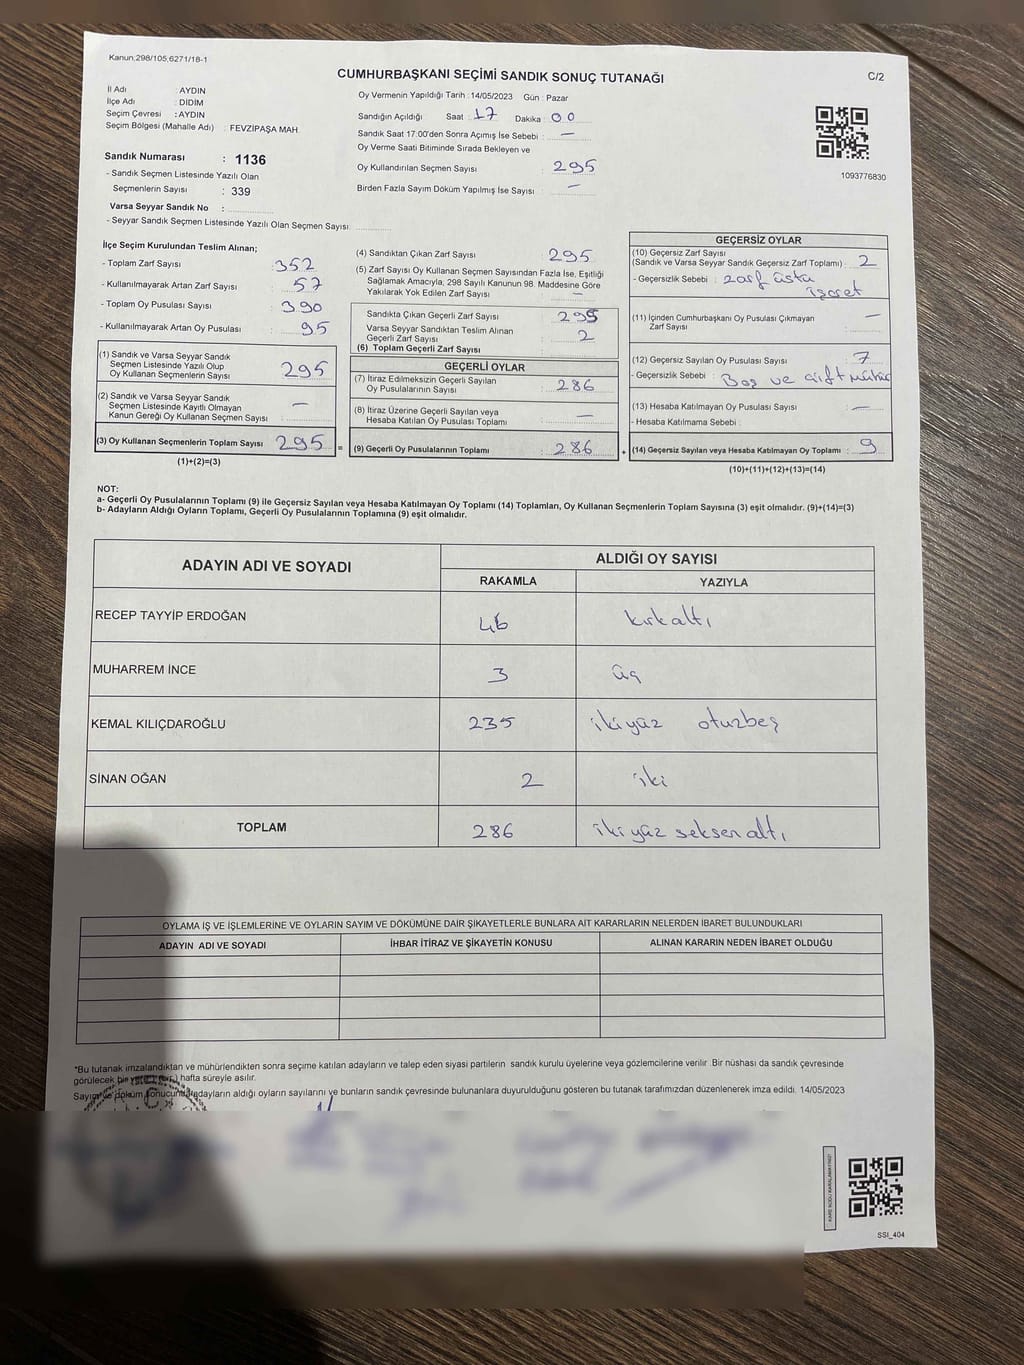 Kanun;298/105;6271/18-1
CUMHURBAŞKANI SEÇİMİ SANDIK SONUÇ TUTANAĞI
C/2
İl Adı : AYDIN
İlçe Adı : DİDİM
Seçim Çevresi : AYDIN
Seçim Bölgesi (Mahalle Adı) : FEVZİPAŞA MAH.
Sandık Numarası : 1136
- Sandık Seçmen Listesinde Yazılı Olan
Seçmenlerin Sayısı : 339
Varsa Seyyar Sandık No :
- Seyyar Sandık Seçmen Listesinde Yazılı Olan Seçmen Sayısı:
Oy Vermenin Yapıldığı Tarih :14/05/2023 Gün : Pazar
Sandığın Açıldığı Saat :17 Dakika :00
Sandık Saat 17:00'den Sonra Açımış İse Sebebi : —
Oy Verme Saati Bitiminde Sırada Bekleyen ve
Oy Kullandırılan Seçmen Sayısı : 295
Birden Fazla Sayım Döküm Yapılmış İse Sayısı : —
1093776830
İlçe Seçim Kurulundan Teslim Alınan;
- Toplam Zarf Sayısı : 352
- Kullanılmayarak Artan Zarf Sayısı : 57
- Toplam Oy Pusulası Sayısı : 390
- Kullanılmayarak Artan Oy Pusulası : 95
(1) Sandık ve Varsa Seyyar Sandık
Seçmen Listesinde Yazılı Olup
Oy Kullanan Seçmenlerin Sayısı : 295
(2) Sandık ve Varsa Seyyar Sandık
Seçmen Listesinde Kayıtlı Olmayan
Kanun Gereği Oy Kullanan Seçmen Sayısı : —
(3) Oy Kullanan Seçmenlerin Toplam Sayısı : 295 =
(1)+(2)=(3)
(4) Sandıktan Çıkan Zarf Sayısı : 295
(5) Zarf Sayısı Oy Kullanan Seçmen Sayısından Fazla İse, Eşitliği
Sağlamak Amacıyla, 298 Sayılı Kanunun 98. Maddesine Göre
Yakılarak Yok Edilen Zarf Sayısı : —
Sandıkta Çıkan Geçerli Zarf Sayısı : 295
Varsa Seyyar Sandıktan Teslim Alınan
Geçerli Zarf Sayısı : 2
(6) Toplam Geçerli Zarf Sayısı :
GEÇERLİ OYLAR
(7) İtiraz Edilmeksizin Geçerli Sayılan
Oy Pusulalarının Sayısı : 286
(8) İtiraz Üzerine Geçerli Sayılan veya
Hesaba Katılan Oy Pusulası Toplamı : —
(9) Geçerli Oy Pusulalarının Toplamı : 286 +
GEÇERSİZ OYLAR
(10) Geçersiz Zarf Sayısı
(Sandık ve Varsa Seyyar Sandık Geçersiz Zarf Toplamı) : 2
- Geçersizlik Sebebi : zarf üstü
işaret
(11) İçinden Cumhurbaşkanı Oy Pusulası Çıkmayan
Zarf Sayısı : —
(12) Geçersiz Sayılan Oy Pusulası Sayısı : 7
- Geçersizlik Sebebi : Boş ve çift mühür
(13) Hesaba Katılmayan Oy Pusulası Sayısı : —
- Hesaba Katılmama Sebebi :
(14) Geçersiz Sayılan veya Hesaba Katılmayan Oy Toplamı : 9
(10)+(11)+(12)+(13)=(14)
NOT:
a- Geçerli Oy Pusulalarının Toplamı (9) ile Geçersiz Sayılan veya Hesaba Katılmayan Oy Toplamı (14) Toplamları, Oy Kullanan Seçmenlerin Toplam Sayısına (3) eşit olmalıdır. (9)+(14)=(3)
b- Adayların Aldığı Oyların Toplamı, Geçerli Oy Pusulalarının Toplamına (9) eşit olmalıdır.
ADAYIN ADI VE SOYADI
ALDIĞI OY SAYISI
RAKAMLA YAZIYLA
RECEP TAYYİP ERDOĞAN 46 kırkaltı
MUHARREM İNCE 3 üç
KEMAL KILIÇDAROĞLU 235 ikiyüz otuzbeş
SİNAN OĞAN 2 iki
TOPLAM 286 ikiyüz seksenaltı
OYLAMA İŞ VE İŞLEMLERİNE VE OYLARIN SAYIM VE DÖKÜMÜNE DAİR ŞİKAYETLERLE BUNLARA AİT KARARLARIN NELERDEN İBARET BULUNDUKLARI
ADAYIN ADI VE SOYADI İHBAR İTİRAZ VE ŞİKAYETİN KONUSU ALINAN KARARIN NEDEN İBARET OLDUĞU
*Bu tutanak imzalandıktan ve mühürlendikten sonra seçime katılan adayların ve talep eden siyasi partilerin sandık kurulu üyelerine veya gözlemcilerine verilir. Bir nüshası da sandık çevresinde
görülecek bir yere hafta süreyle asılır.
Sayım ve döküm sonucunda adayların aldığı oyların sayılarını ve bunların sandık çevresinde bulunanlara duyurulduğunu gösteren bu tutanak tarafımızdan düzenlenerek imza edildi. 14/05/2023
SSI_404